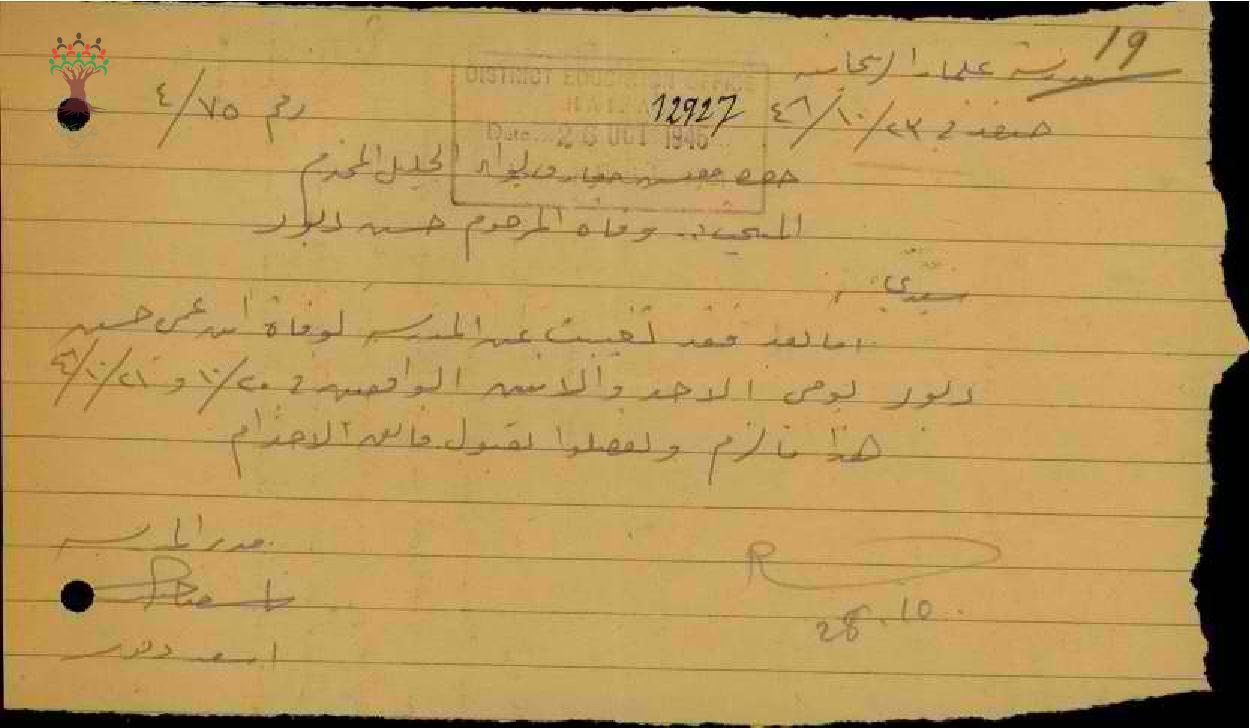 19
مدرسة علما الريحانية
صفد في ٢٣/١٠/٤٦
رقم ٤/٧٥
DISTRICT EDUCATION OFFICE
HAIFA
12927
Date 26 OCT 1946
حضرة مفتش معارف لواء الجليل المحترم
وفاة المرحوم حسين دبور
سيدي
اما بعد فقد تغيبت عن المدرسة لوفاة ابن عمي حسين
دبور يومي الاحد والاثنين الواقعين في ٢٠/١٠ و ٢١/١٠/٤٦
هذا ما لزم وتفضلوا بقبول فائق الاحترام
مدير المدرسة
اسعد دبور
R
28.10